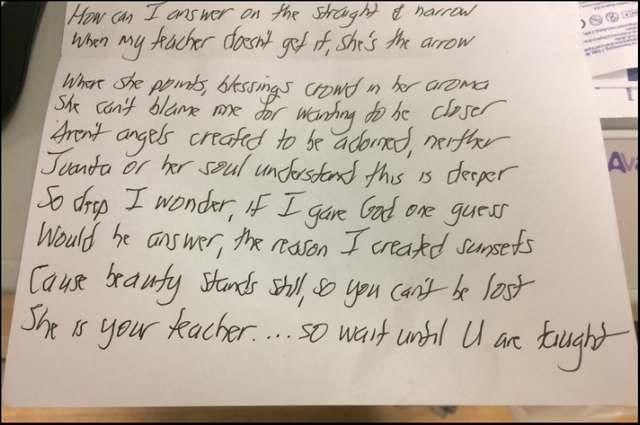 How can I answer on the straight & narrow
When my teacher doesn't get it, she's the arrow
Where she points, blessings crowd in her aroma
She can't blame me for wanting to be closer
Aren't angels created to be adorned, neither
Juanta or her soul understand this is deeper
So deep I wonder, if I gave God one guess
Would he answer, the reason I created sunsets
Cause beauty stands still, so you can't be lost
She is your teacher.... so wait until U are taught